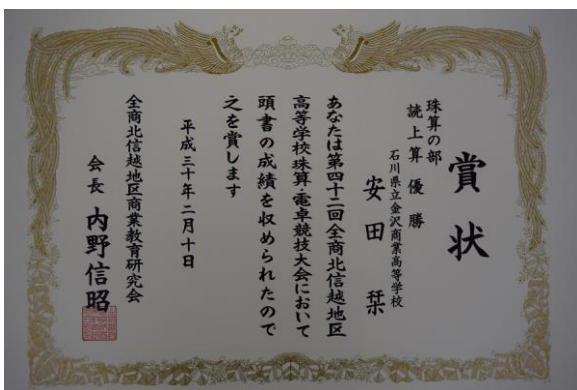 賞状
珠算の部
読上算 優勝
石川県立金沢商業高等学校
安田栞
あなたは第四十二回全商北信越地区
高等学校珠算・電卓競技大会において
頭書の成績を収められたので
之を賞します
平成三十年二月十日
全商北信越地区商業教育研究会
会長 内野信昭